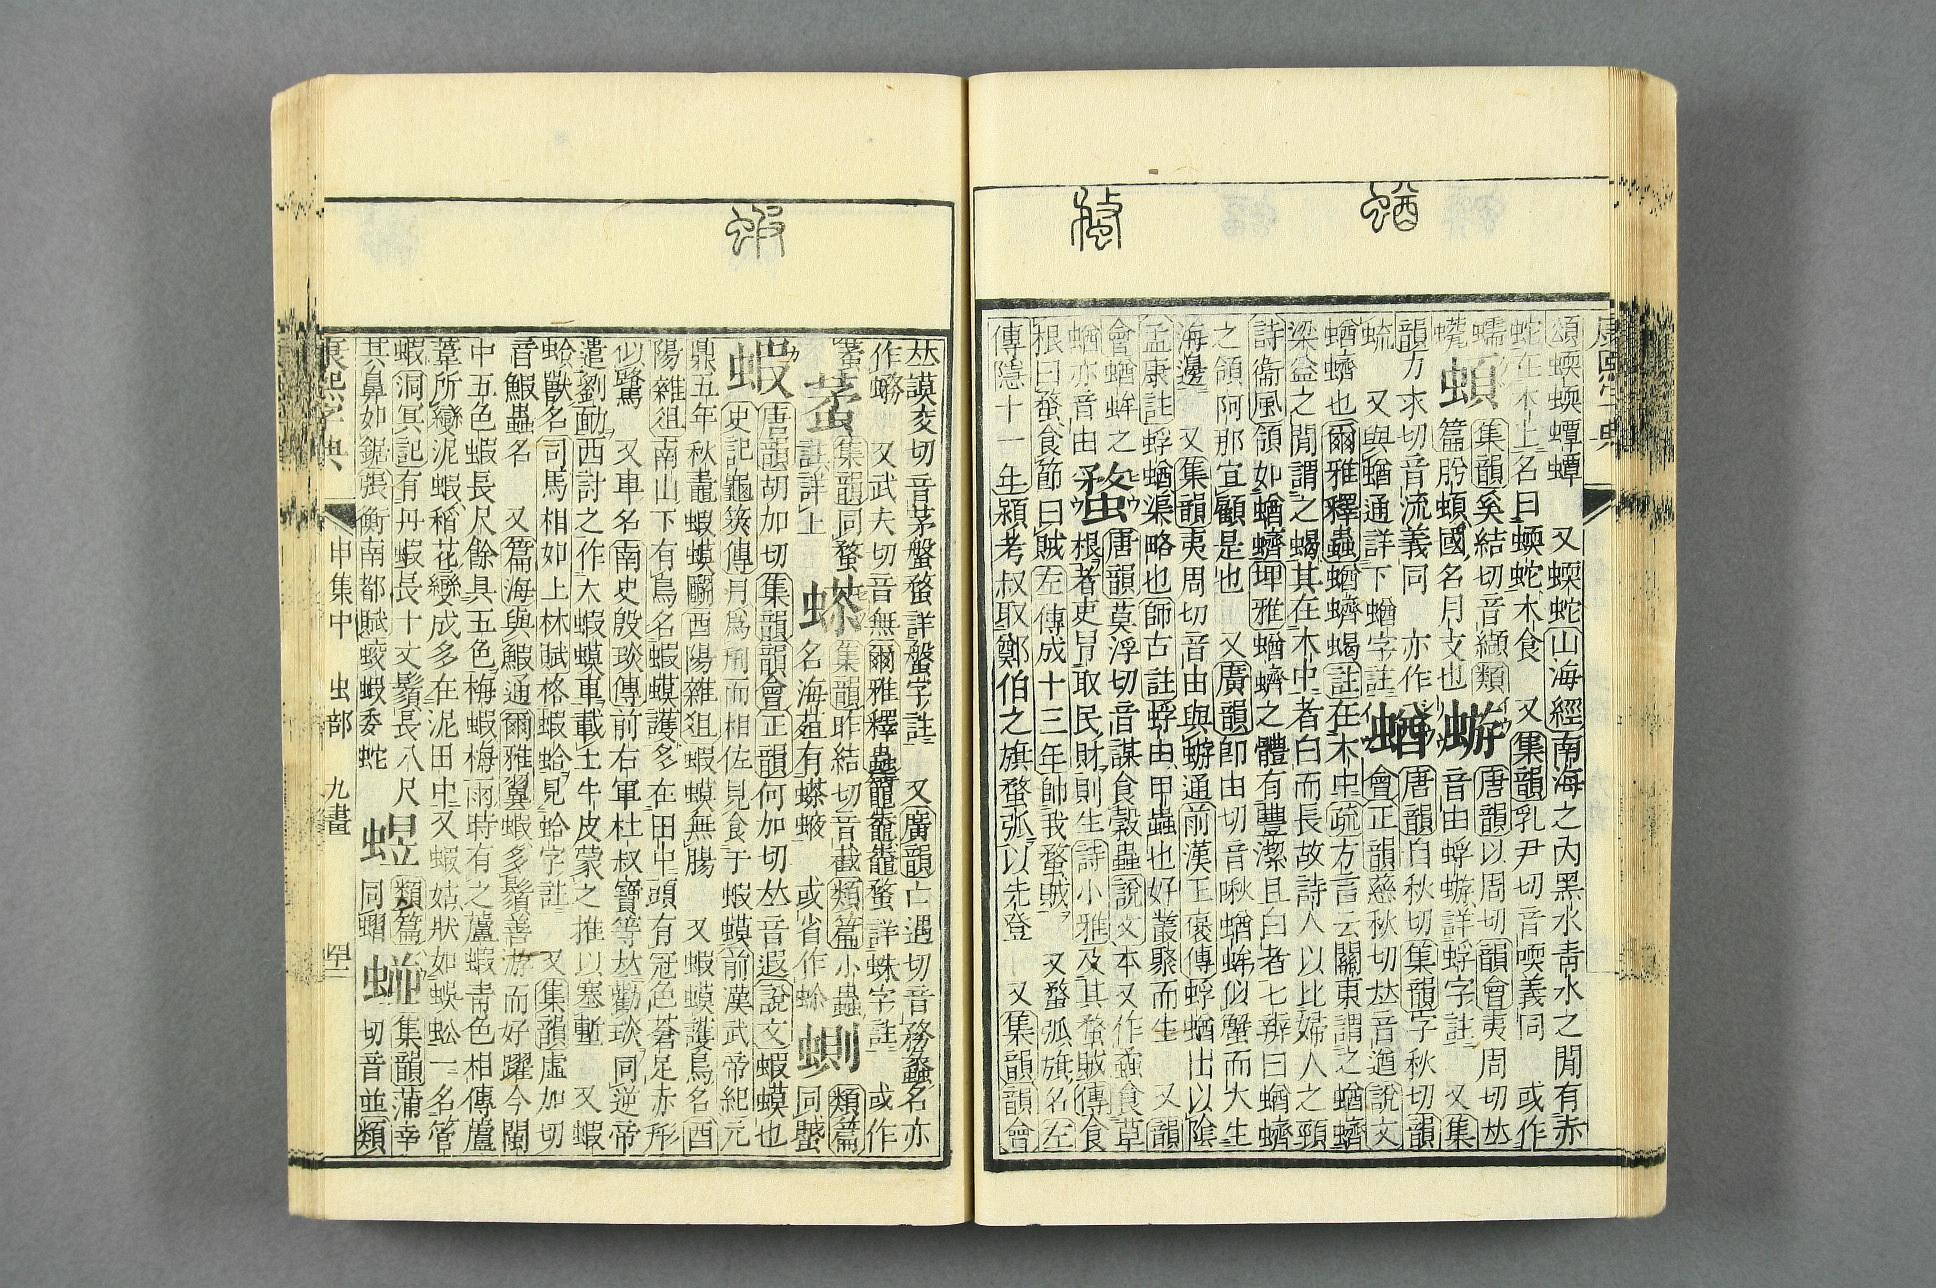 蝤
蝥
頌蝡蝡蟫蟫　又蝡蛇山海經南海之內黑水靑水之閒有赤
蛇在木上名曰蝡蛇木食　又集韻乳尹切音㖱義同　或作
蠕
集韻奚結切音纈類
篇蛩蝢國名月支也
蝣
唐韻以周切韻會夷周切𠀤
音由蜉蝣詳蜉字註　又集
韻力求切音流義同　亦作
蝤
唐韻自秋切集韻字秋切韻
會正韻慈秋切𠀤音遒說文
又與蝤通詳下蝤字註
蝤蠐也爾雅釋蟲蝤蠐蝎註在木中疏方言云關東謂之蝤蠐
梁益之閒謂之蝎其在木中者白而長故詩人以比婦人之頸
詩衞風領如蝤蠐埤雅蝤蠐之體有豐潔且白者七辨曰蝤蠐
之領阿那宜顧是也　又廣韻卽由切音啾蝤蛑似蟹而大生
海邊　又集韻夷周切音由與蝣通前漢王褒傳蜉蝤出以陰
孟康註蜉蝤渠略也師古註蜉由甲蟲也好叢聚而生　又韻
會蝤蛑之蝤亦音由
蝥
唐韻莫浮切音謀食穀蟲說文本又作蟊食草
根者吏冒取民財則生詩小雅及其蝥賊傳食
根曰蝥食節曰賊左傳成十三年帥我蝥賊　又蝥弧旗名左
傳隱十一年潁考叔取鄭伯之旗蝥弧以先登　又集韻韻會
康熙字典
蝦
𠀤謨交切音茅盤蝥詳盤字註　又廣韻亡遇切音務蟲名亦
作　又武夫切音無爾雅釋蟲鼅鼄鼄蝥詳蛛字註　或作
集韻同蝥
註詳上
集韻昨結切音截類篇小蟲
名海葅有　或省作
蝍
類篇
同蠈
蝦
唐韻胡加切集韻韻會正韻何加切𠀤音遐說文蝦蟆也
史記龜筴傳月爲刑而相佐見食于蝦蟆前漢武帝紀元
鼎五年秋鼃蝦蟆鬭酉陽雜俎蝦蟆無腸　又蝦蟆護鳥名酉
陽雜俎南山下有鳥名蝦蟆護多在田中頭有冠色蒼足赤形
似鷺　又車名南史殷琰傳前右軍杜叔寶等𠀤勸琰同逆帝
遣劉勔西討之作大蝦蟆車載土牛皮蒙之推以塞塹　又蝦
蛤獸名司馬相如上林賦格蝦蛤見蛤字註　又集韻虛加切
音鰕蟲名　又篇海與鰕通爾雅翼蝦多鬚善游而好躍今閩
中五色蝦長尺餘具五色梅蝦梅雨時有之蘆蝦靑色相傳蘆
葦所變泥蝦稻花變成多在泥田中又蝦姑狀如蜈蚣一名管
蝦洞冥記有丹蝦長十丈鬚長八尺
其鼻如鋸張衡南都賦蛟蝦委蛇
類篇
同
集韻蒲幸
切音並類
康熙字典
申集中　虫部　九畫